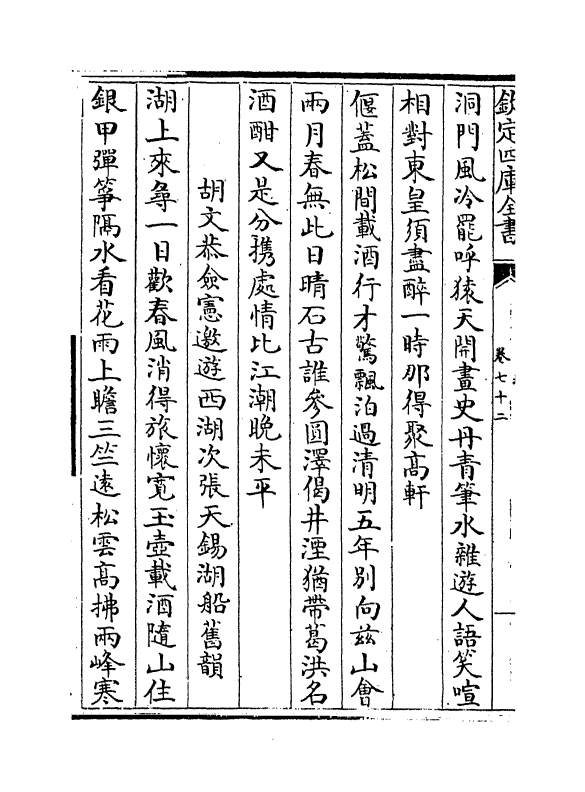 欽定四庫全書
卷七十二
洞門風冷罷呼猿天開畫史丹青筆水雜遊人語笑喧
相對東皇須盡醉一時那得聚高軒
偃蓋松間載酒行才驚飄泊過清明五年別向兹山會
兩月春無此日晴石古誰參圓澤偈井湮猶帶葛洪名
酒酣又是分携處情比江潮晚未平
胡文恭僉憲邀遊西湖次張天錫湖船舊韻
湖上來尋一日歡春風消得旅懷寛玉壺載酒隨山住
銀甲彈箏隔水看花雨上瞻三竺逺松雲髙拂兩峰寒